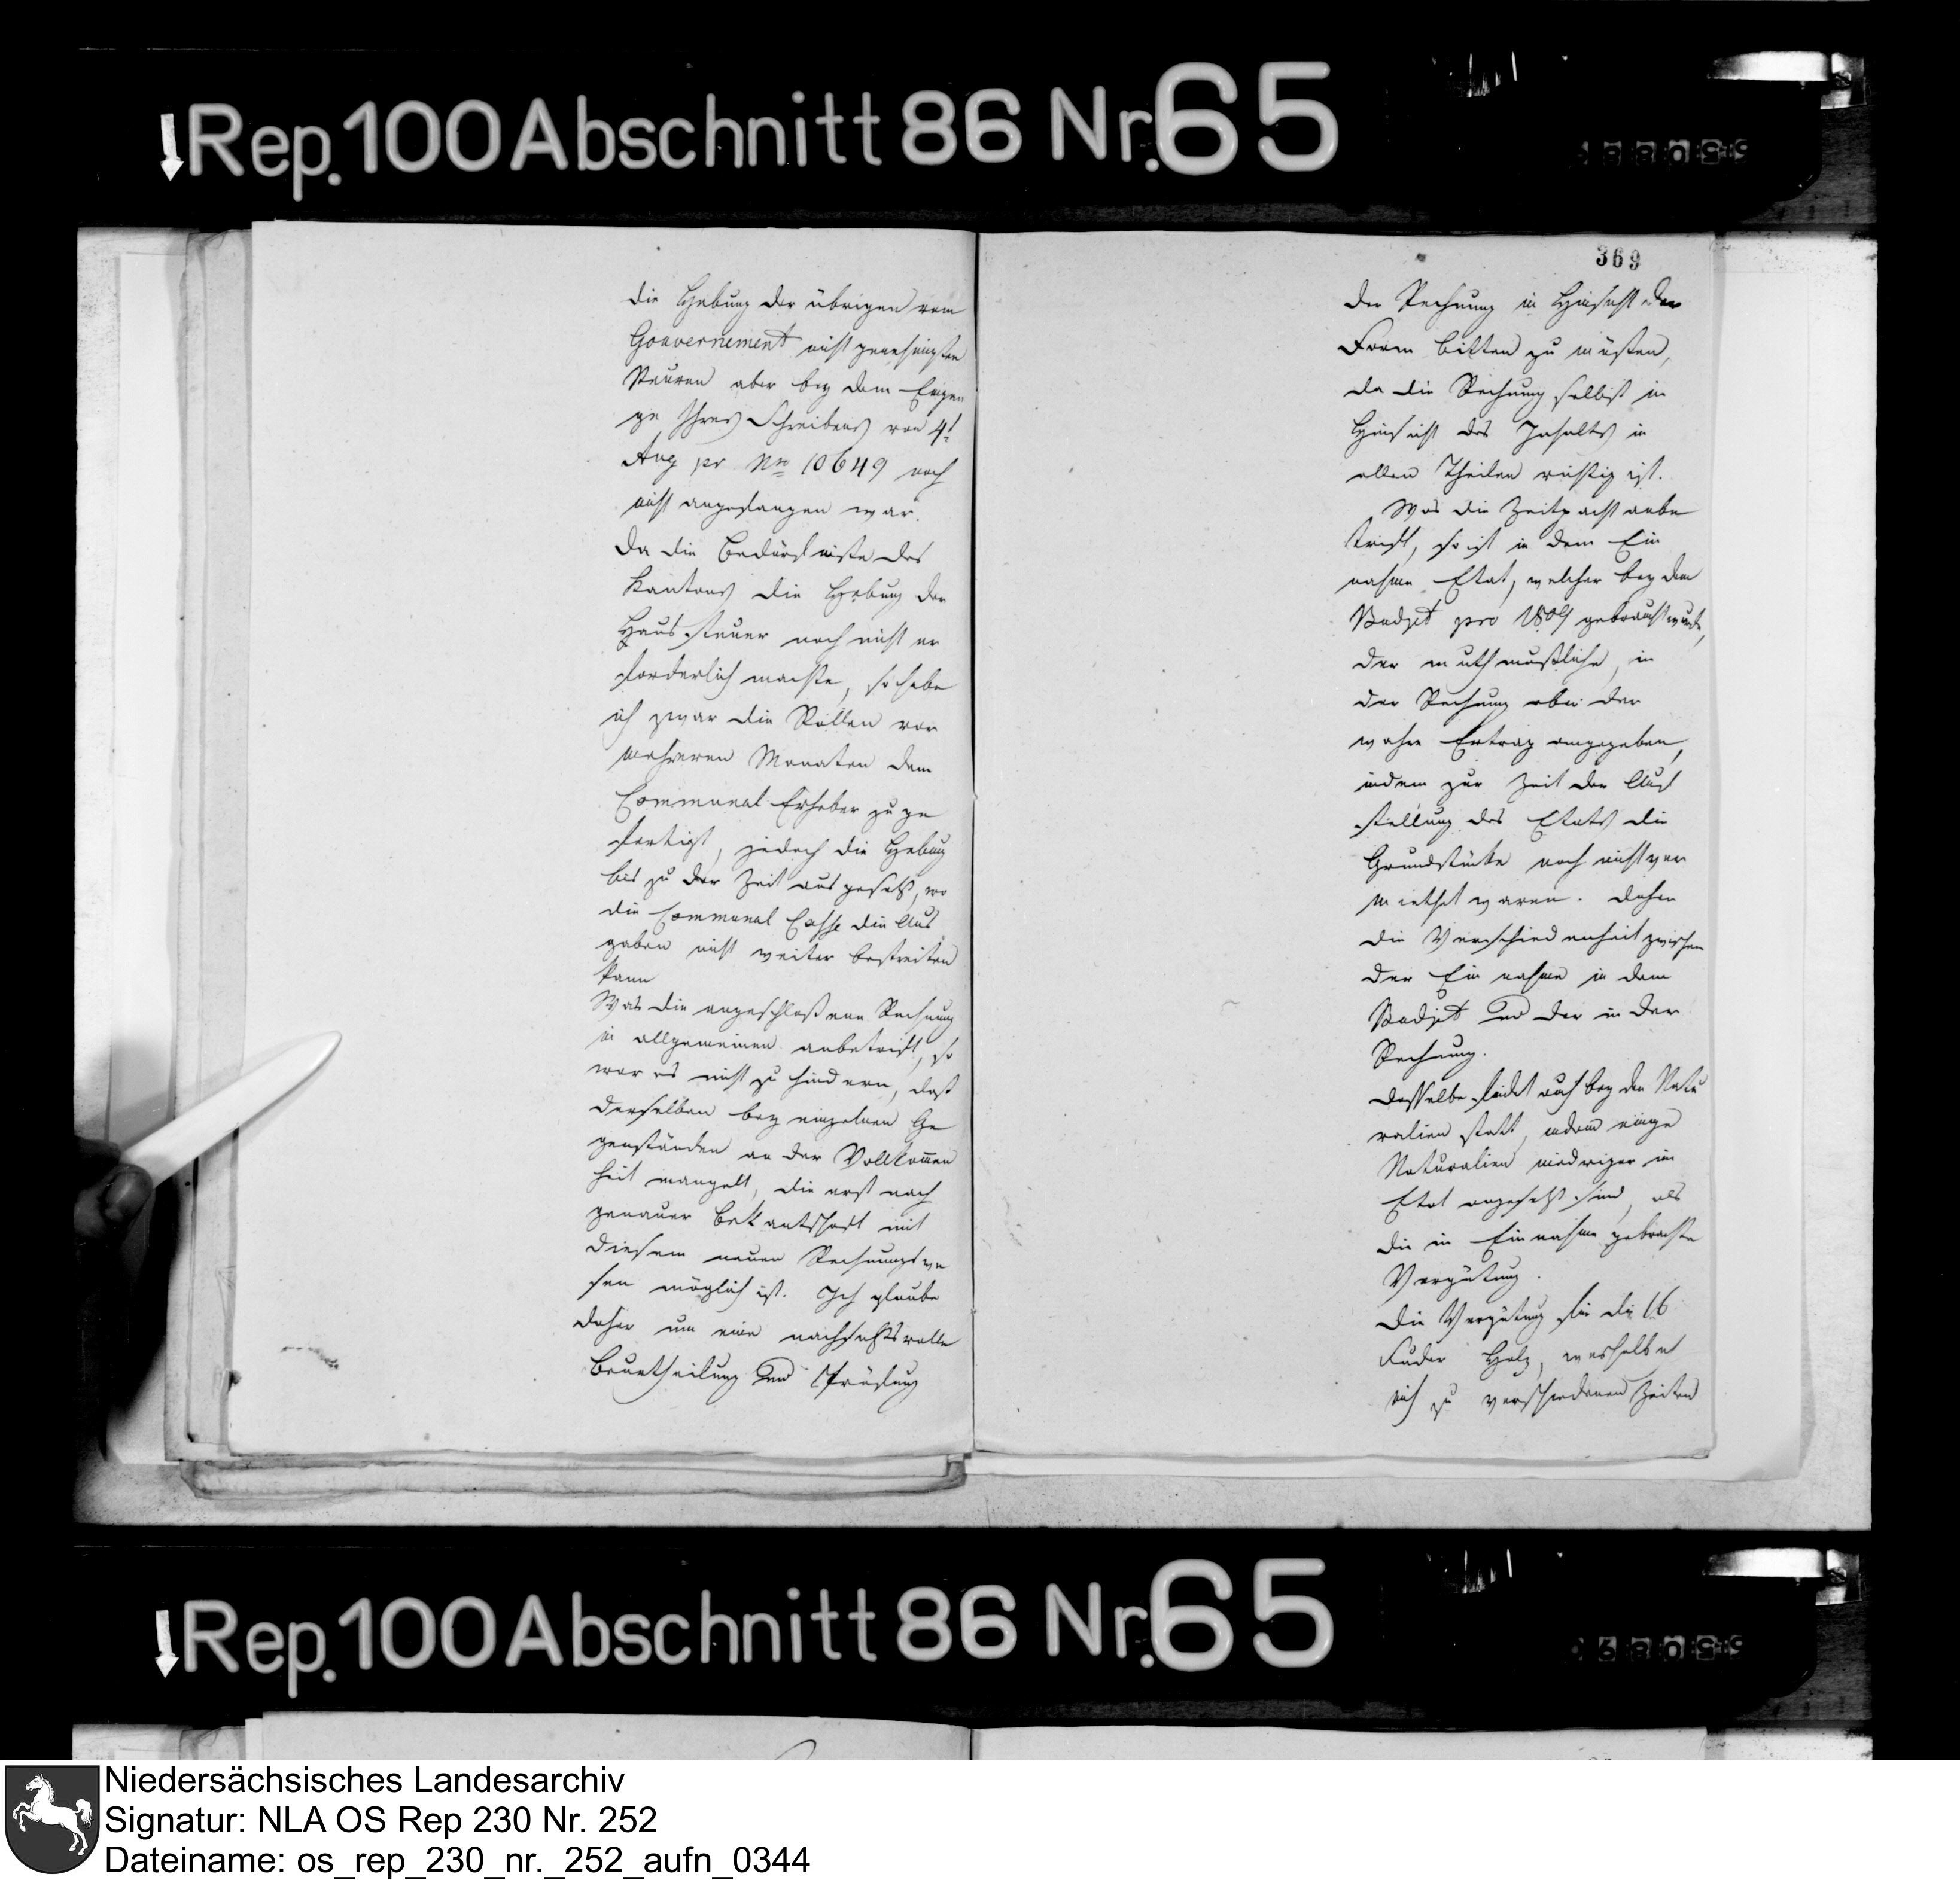 Rep. 100 Abschnitt 86 Nr. 65
die Hebung der übrigen vom
Gouvernement nicht genehmigten
Steuren aber bey dem Empfan
ge Ihres Schreibens von 4t
Aug pr No 10649 noch
nicht angefangen war.
Da die Bedürfnisse des
Kantons die Hebung der
Haussteuer noch nicht er
forderlich machte, so habe
ich zwar die Rollen vor
mehreren Monaten dem
Communal Erheber zu ge
fertigt, jedoch die Hebung
bis zu der Zeit ausgesetzt, wo
die Communal Casse die Aus
gaben nicht weiter bestreiten
kann
Was die angeschloßene Rechnung
im allgemeinen anbetrift, so
war es nicht zu hindern, daß
derselben bey einzelnen Ge
genständen an der Vollkommen
heit mangelt, die erst nach
genauer Bekantschaft mit
diesem neuen Rechnungswe
sen möglich ist. Ich glaube
daher um eine nachsichtsvolle
Beurtheilung und Prüfung
369
der Rechnung in Hinsicht der
Form bitten zu müßen,
da die Rechnung selbst in
Hinsicht des Inhalts in
allen Theilen richtig ist.
Was die Zeitpacht anbe
trift, so ist in dem Ein
nahme Etat, welcher bey dem
Budjet pro 1809 gebraucht wurde,
der muthmaßliche, in
der Rechnung aber der
wahre Ertrag angegeben,
indem zur Zeit der Auf
stellung des Etats die
Grundstücke noch nicht ver
miethet waren. Daher
die Verschiedenheit zwischen
der Einnahme in dem
Budjet und der in der
Rechnung.
Dasselbe findet auch bey den Natu
ralien statt, indem einige
Naturalien niedriger im
Etat angesetzt sind, als
die in Einnahme gebrachte
Vergütung.
Die Vergütung für die 16
Fuder Holz, weshalb
ich zu verschiedenen Zeiten
Rep. 100 Abschnitt 86 Nr. 65
Niedersächsisches Landesarchiv
Signatur: NLA OS Rep 230 Nr. 252
Dateiname: os_rep_230_nr._252_aufn_0344